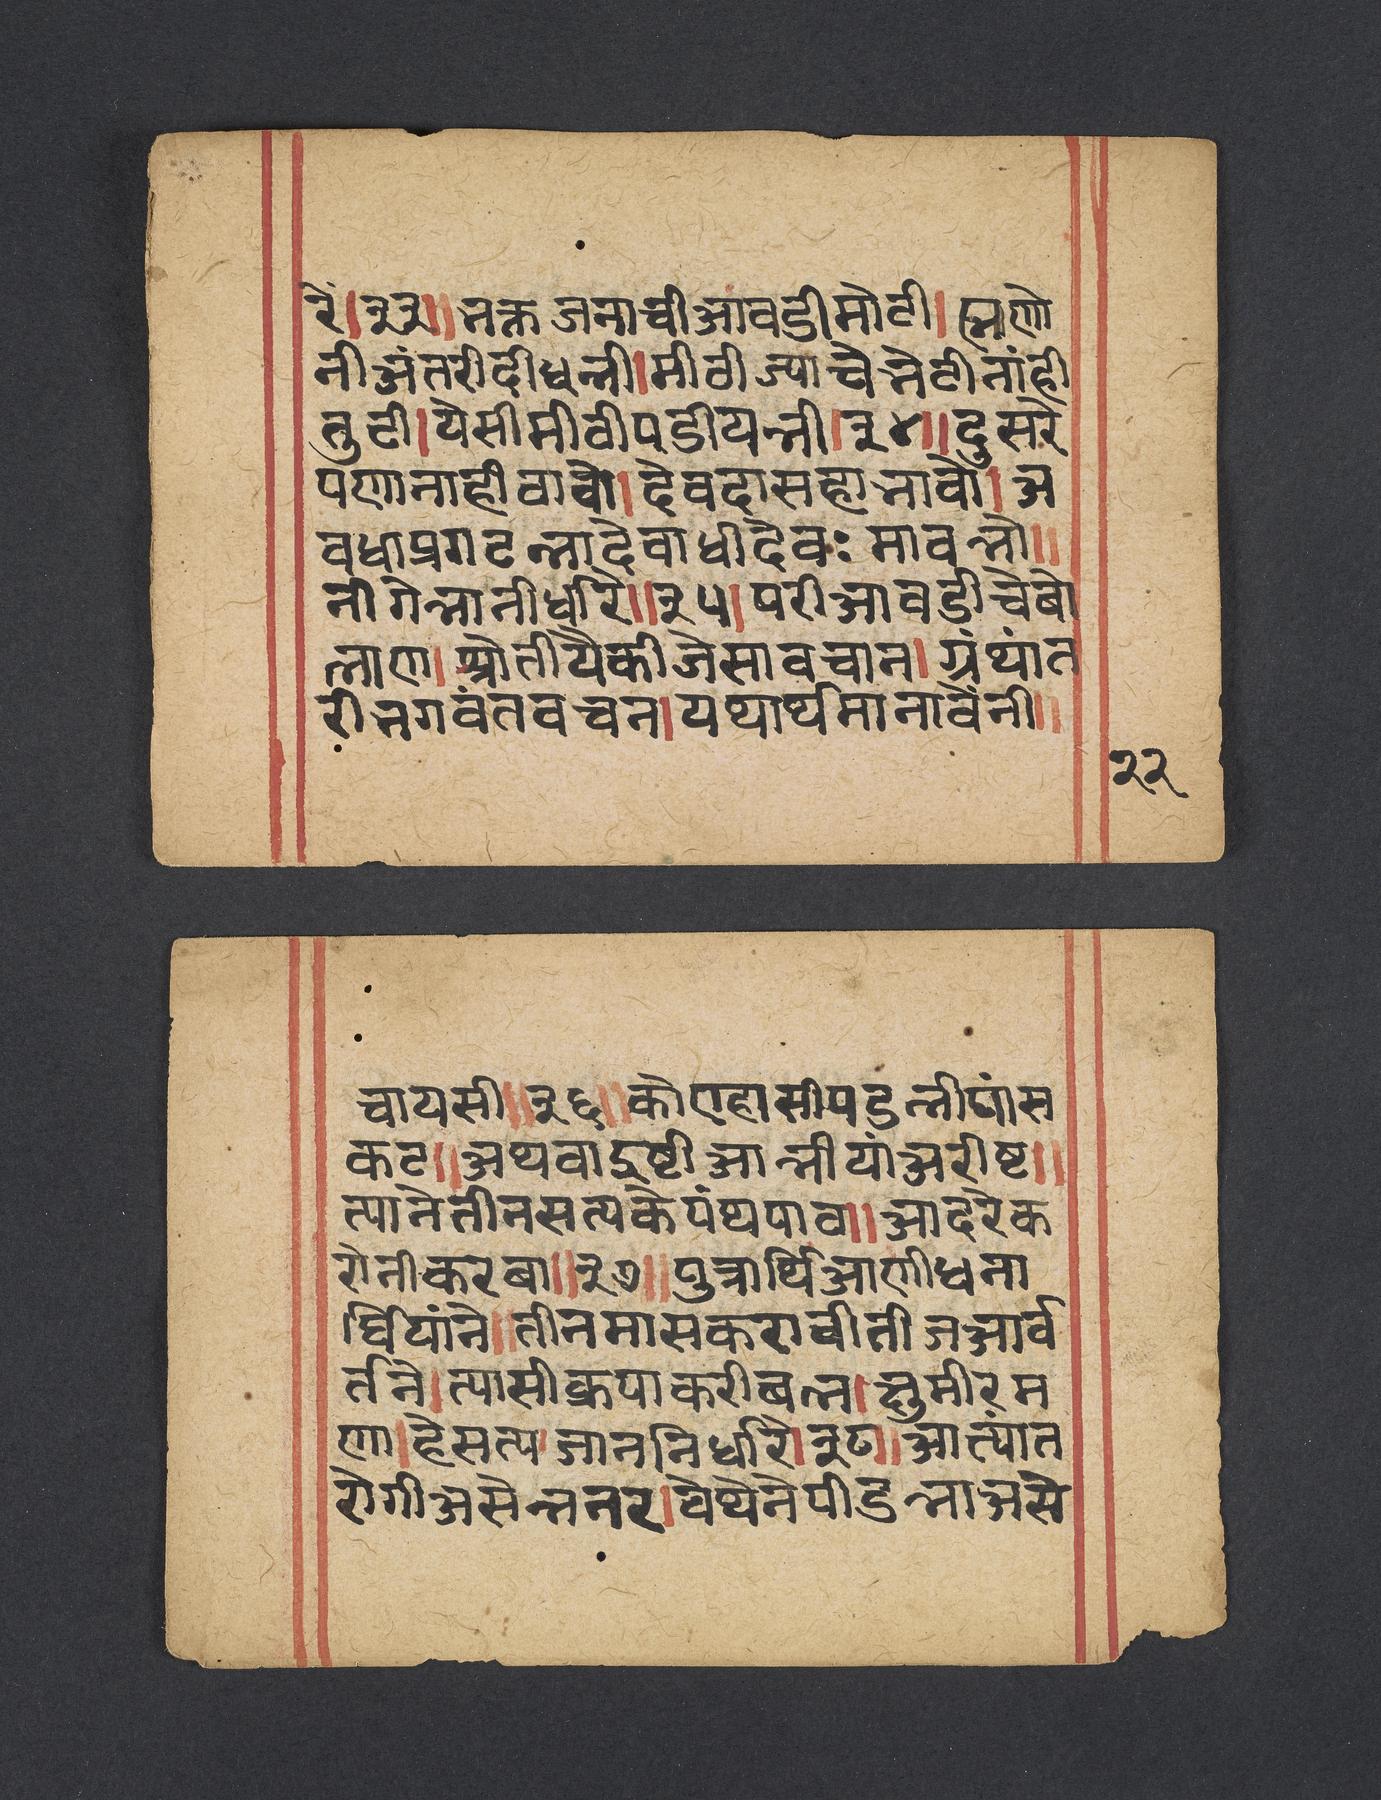 रें।३३॥भक्त जनाची आंवडी मोठी। म्हणो
नी अंतरी दीधली।मीठी ज्याचे भेटी नांही
तुटी।यैसी मीठी पडीयली।३४॥दुसरे
पणा नाही वावो। देवदास हा भावो। अ
वघा प्रगटला देवाधीदेवः मावलो॥
नी गेला नीर्धारे॥३५।परी आवडीचे बो
लाण। प्रोती यैकी जैसा वचान। ग्रंथांत
री भगवंत वचन।यथार्थ मानावें नी॥
२२
चायसी॥३६॥कोण्हासी पडली घांस
कट॥अथवा दुष्टी आलीयां अरीष्ट॥
त्याने तीन सत्यके पंथ पाव॥आदरे क
रोनी करबा॥३७॥पुत्रार्थि आणी धना
र्थियांने॥तीन मास करावी ती ज आर्व
र्तने।त्यासी क्रपा करी बल। लुमीरम
णा।हे सत्य जान निर्धारे।३८॥आत्यांत
रोगी असेल नर।वेथेने पीडला असे